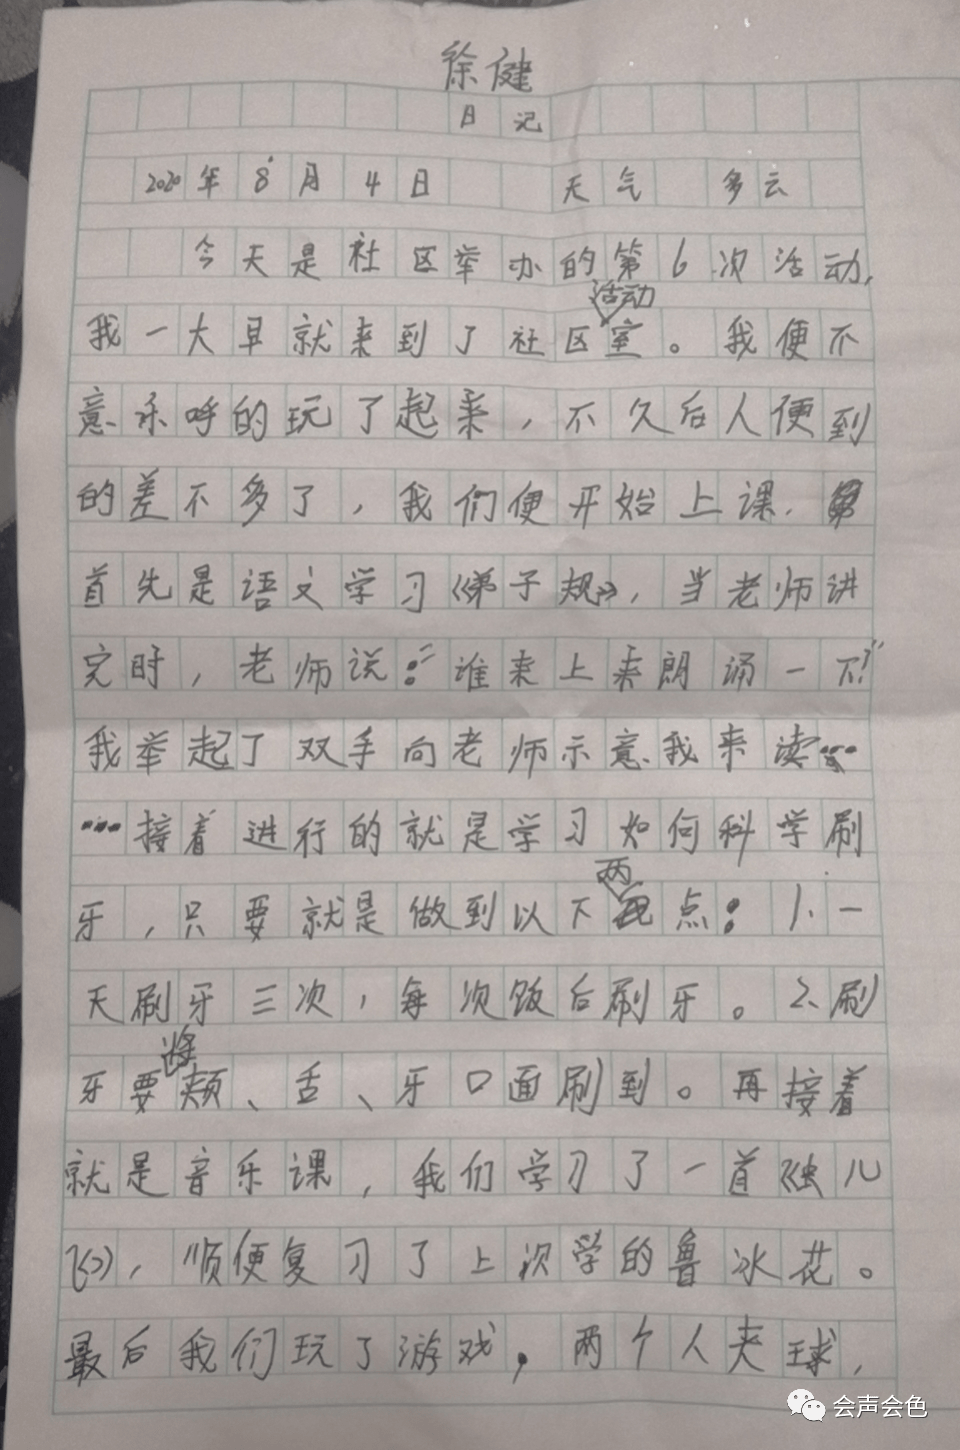 徐健
日记
2020年8月4日 天气 多云
今天是社区举办的第6次活动,
我一大早就来到了社区活动室。我便不
意乐呼的玩了起来,不久后人便到
的差不多了,我们便开始上课.
首先是语文学习《弟子规》,当老师讲
完时,老师说:“谁来上来朗诵一下?”
我举起了双手向老师示意我来读…
…接着进行的就是学习如何科学刷
牙,只要就是做到以下两点:1、一
天刷牙三次,每次饭后刷牙。2、刷
牙要将颊、舌、牙口面刷到。再接着
就是音乐课,我们学习了一首《虫儿
飞》,顺便复习了上次学的鲁冰花。
最后我们玩了游戏,两个人夹球,
会声会色